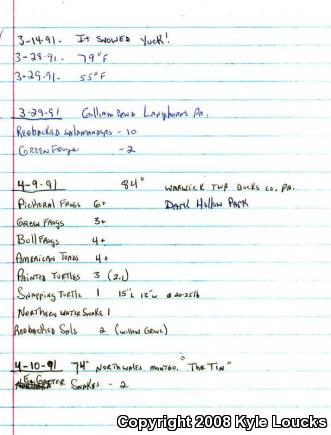 3-14-91- IT SNOWED YUCK!
3-28-91- 79°F
3-29-91- 55°F
3-29-91 Gillham Pond Langhorne PA.
REDBACKED SALAMANDERS - 10
GREEN Frogs - 2
4-9-91 84° WARWICK TWP BUCKS CO. PA.
Pickeral Frogs 6+ DARK Hollow PARK
GREEN FROGS 3+
Bull Frogs 4+
AMERICAN TOADS 4+
PAINTED TURTLES 3 (2.1)
SNAPPING TURTLE 1 15"L 12"W @ 20-25lb
NORTHERN WATER SNAKE 1
REDBACKED SALS 2
4-10-91 74° NORTH WALES MONTGO. "THE TIN"
GARTER SNAKES - 2
Copyright 2008 Kyle Loucks